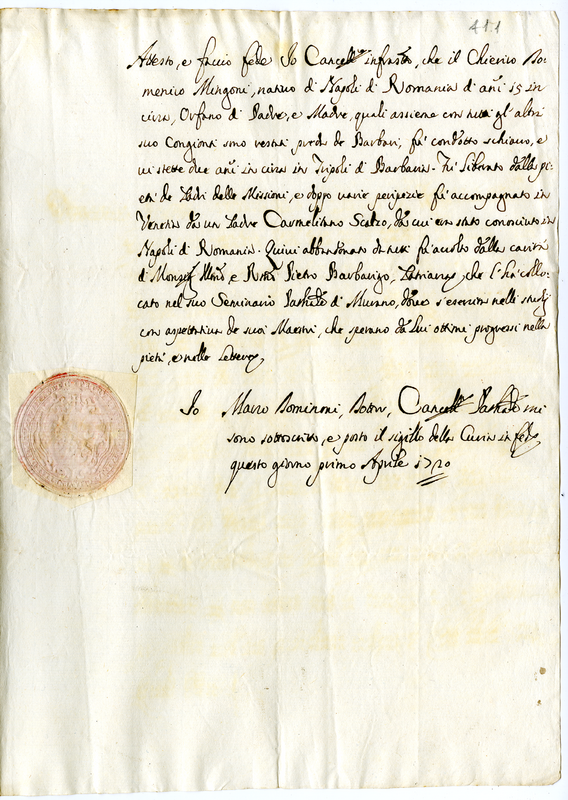 411
Attesto, e faccio fede Io Cancell.e infrasto, che il Chierico Do-
menico Mengoni, nativo di Napoli di Romania di añi 15 in
circa, Orfano di Padre, e Madre, quali assieme con tutti gl'altri
suo Congionti sono restati preda de Barbari, fù condotto schiavo, e
vi stette due añi in circa in Tripoli di Barbaria. Fù liberato dalla pi-
età de Padri delle Missioni, e doppo varie peripezie fù accompagnato in
Venetia da un Padre Carmelitano Scalzo, da cui era stato conosciuto in
Napoli di Romania. Quivi abbandonato da tutti fù accolto dalla carità
di Monsig.r Illmo e Rmo Pietro Barbarigo, Patriarca, che l'hà collo-
cato nel suo Seminario Patriale di Murano, dove s'esercita nelli studij
con aspettativa de suoi Maestri, che sperano da lui ottimi progressi nella
pietà, e nelle Lettere,
Io Marco Dominoni, Dottor, Cancell.r Patriale mi
sono sottoscritto, e posto il sigillo della Curia in fede
questo giorno primo Aprile 1720